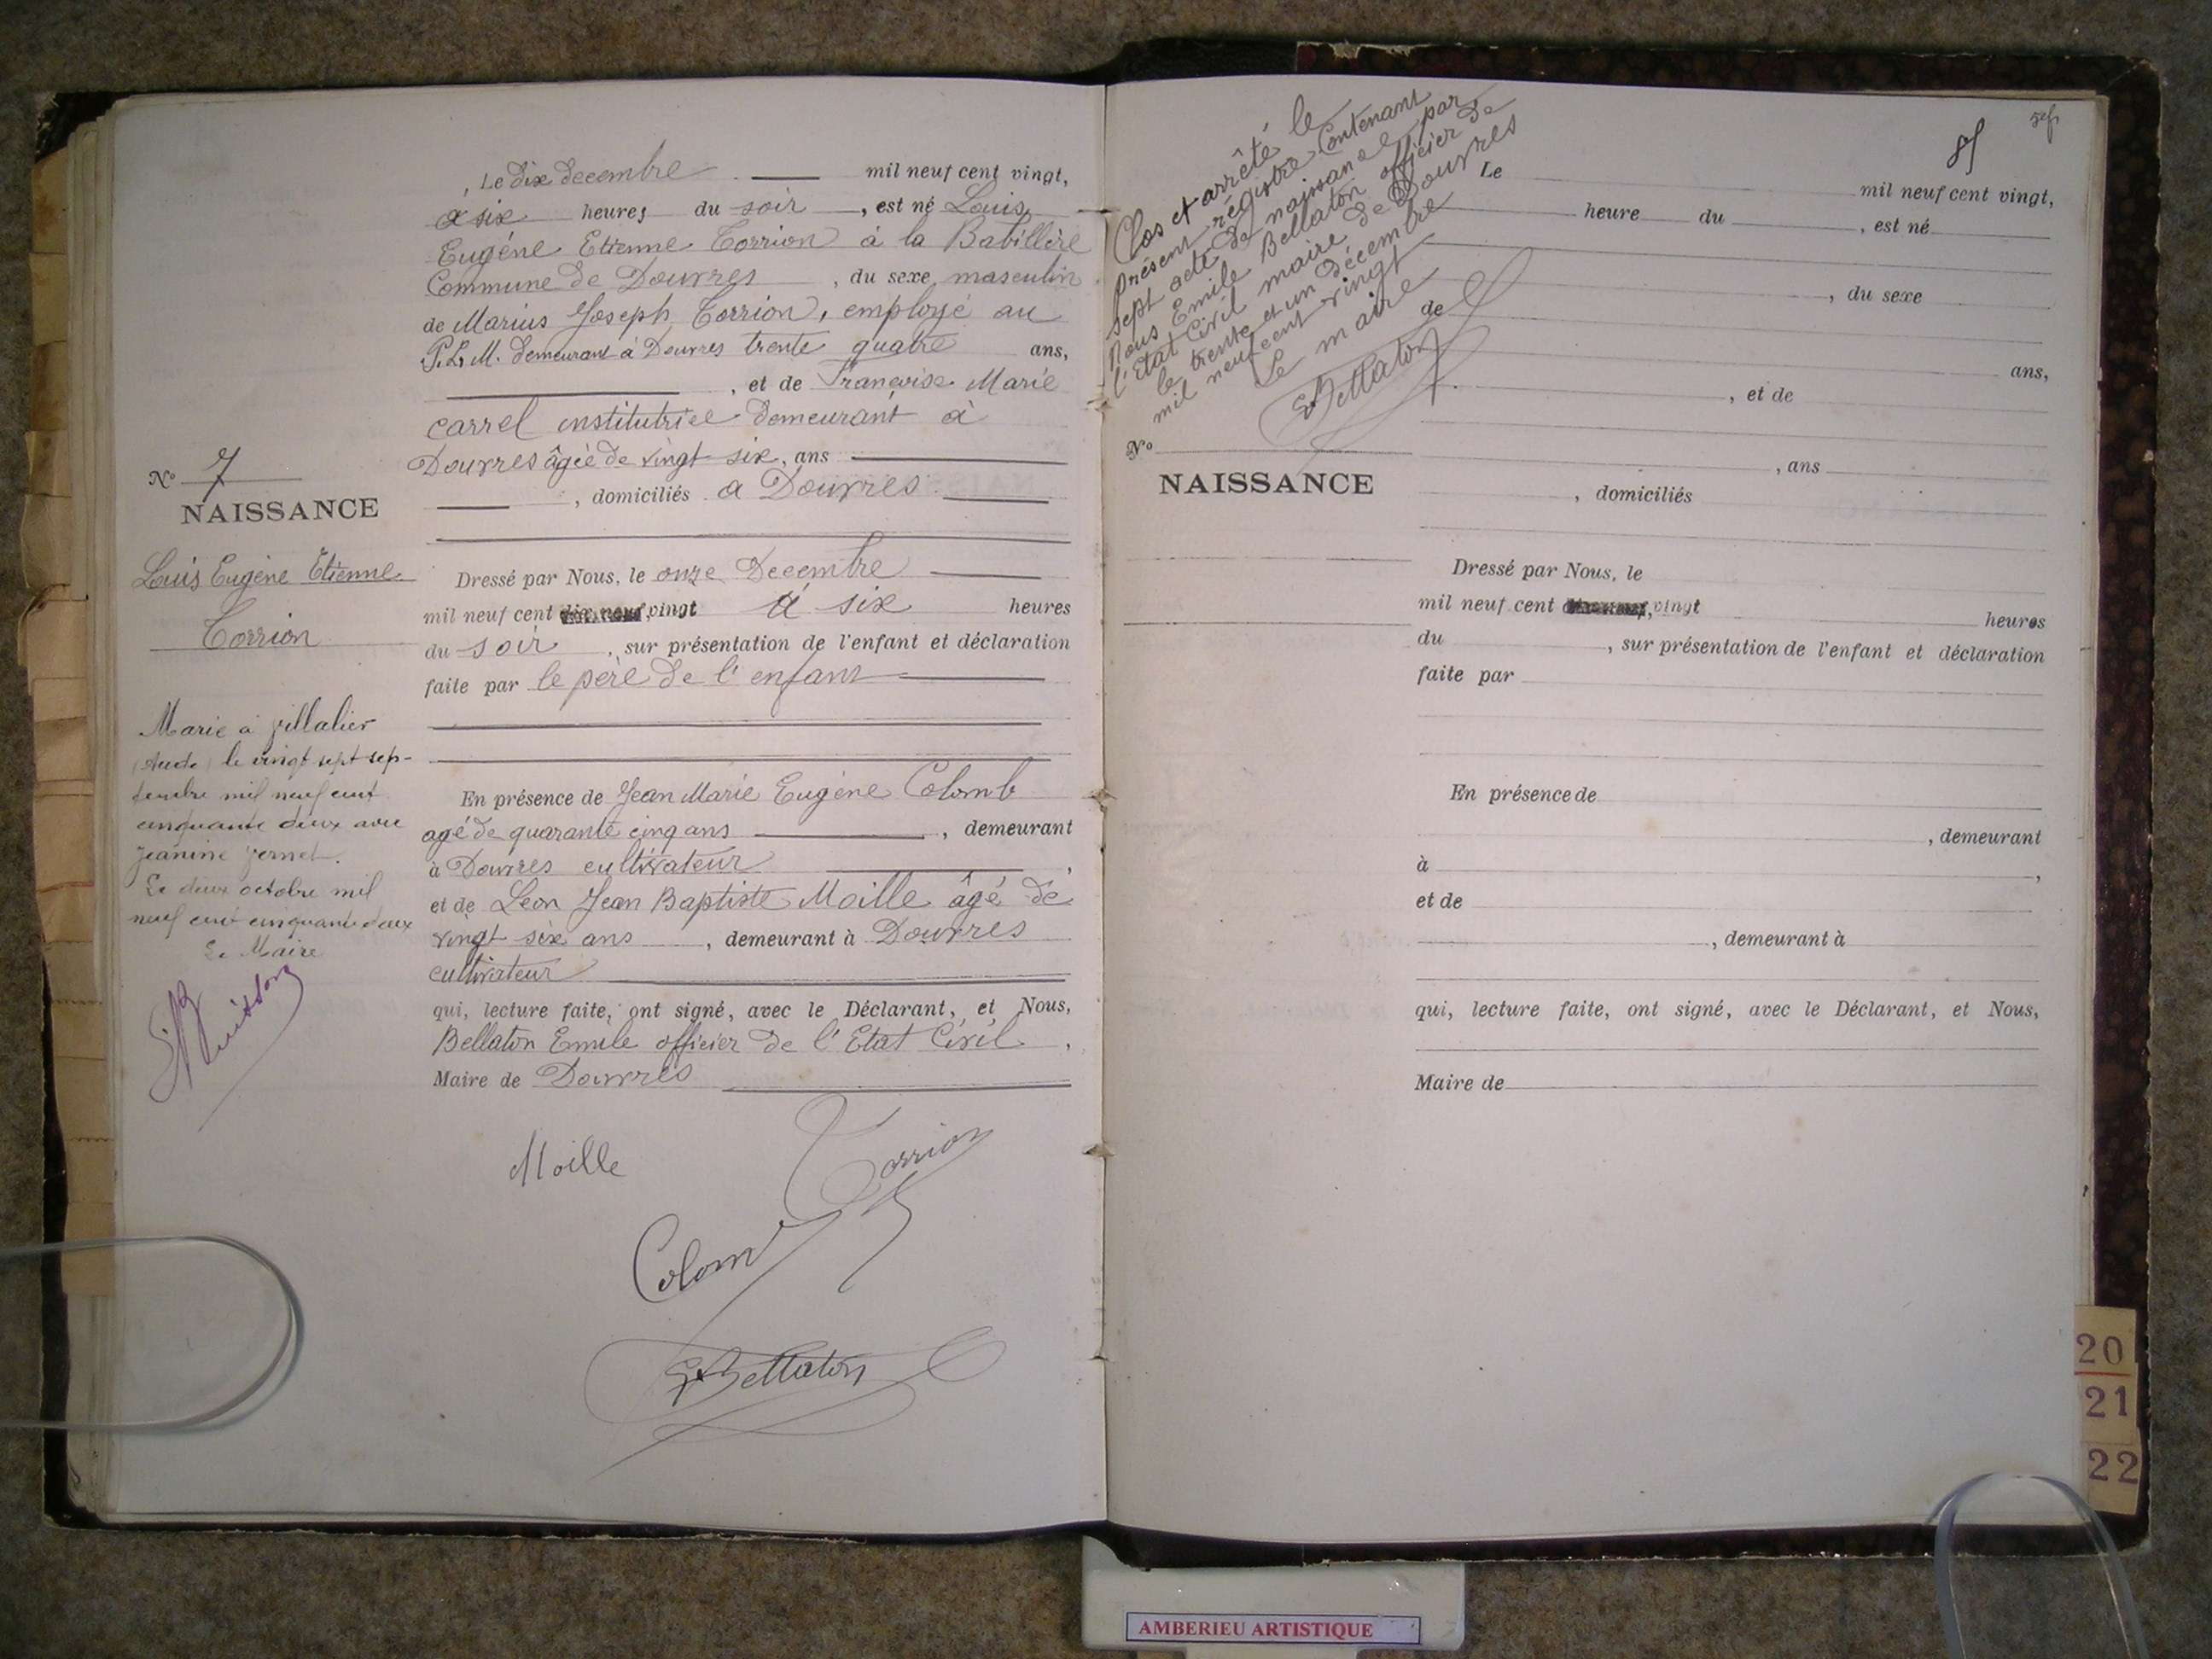 N° 7
NAISSANCE
Louis Eugène Etienne
Corrion
Marié à Villalier
(Aude) le vingt sept sep-
tembre mil neuf cent
cinquante deux avec
Jeanine
Le deux octobre mil
neuf cent cinquante deux
Le Maire
, Le dix decembre mil neuf cent vingt,
à six heures du soir, est né Louis
Eugéne Etienne Corrion à la Babillère
Commune de Douvres, du sexe masculin
de Marius Joseph Corrion, employé au
P.L.M. demeurant à Douvres trente quatre ans,
, et de Françoise Marie
Carrel institutrice demeurant à
Douvres âgée de vingt six, ans
, domiciliés a Douvres
Dressé par Nous, le onze Decembre
mil neuf cent dix-neuf, vingt à six heures
du soir, sur présentation de l'enfant et déclaration
faite par le père de l'enfant
En présence de Jean Marie Eugène Colomb
agé de quarante cinq ans, demeurant
à Douvres cultivateur,
et de Leon Jean Baptiste Moille âgé de
vingt six ans, demeurant à Douvres
cultivateur
qui, lecture faite, ont signé, avec le Déclarant, et Nous,
Bellaton Emile officier de l'Etat Civil,
Maire de Douvres
Moille
Corrion
Colomb
E Bellaton
Clos et arrêté le
présent régistre Contenant
sept acte de naissance par
Nous Emile Bellaton officier de
l'Etat Civil maire de Douvres
le trente et un décembre
mil neuf cent vingt
Le maire
E Bellaton
N°
NAISSANCE
Le mil neuf cent vingt,
heure du, est né
, du sexe
de
ans,
, et de
, ans
, domiciliés
Dressé par Nous, le
mil neuf cent dix-neuf, vingt heures
du, sur présentation de l'enfant et déclaration
faite par
En présence de
, demeurant
à,
et de
, demeurant à
qui, lecture faite, ont signé, avec le Déclarant, et Nous,
Maire de
20
21
22
AMBERIEU ARTISTIQUE